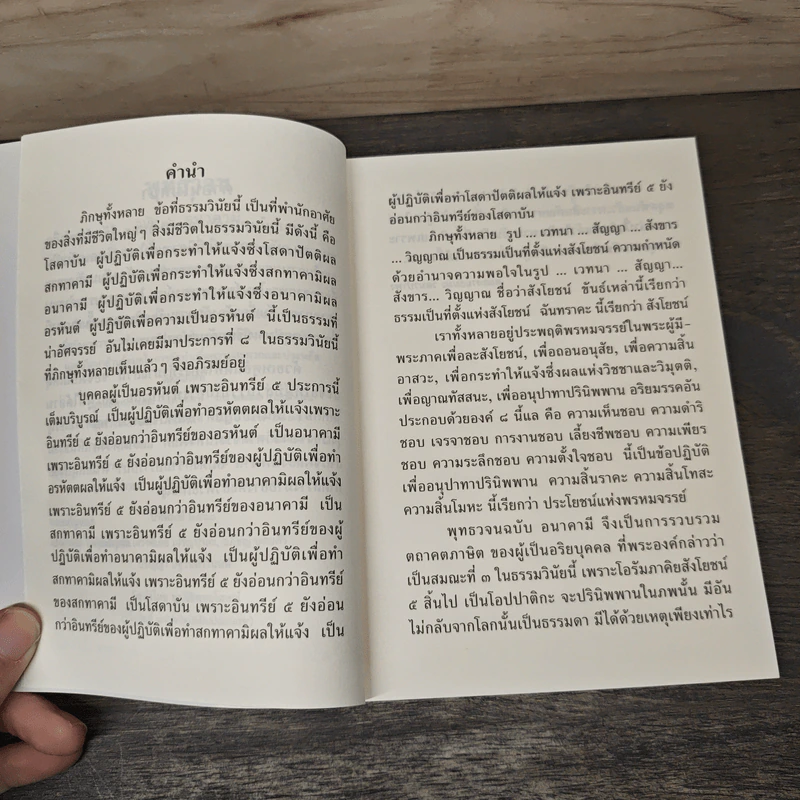 คำนำ
ภิกษุทั้งหลาย ข้อที่ธรรมวินัยนี้ เป็นที่พำนักอาศัย
ของสิ่งที่มีชีวิตใหญ่ๆ สิ่งมีชีวิตในธรรมวินัยนี้ มีดังนี้ คือ
โสดาบัน ผู้ปฏิบัติเพื่อกระทำให้แจ้งซึ่งโสดาปัตติผล
สกทาคามี ผู้ปฏิบัติเพื่อกระทำให้แจ้งซึ่งสกทาคามิผล
อนาคามี ผู้ปฏิบัติเพื่อกระทำให้แจ้งซึ่งอนาคามิผล
อรหันต์ ผู้ปฏิบัติเพื่อความเป็นอรหันต์ นี้เป็นธรรมที่
น่าอัศจรรย์ อันไม่เคยมีมาประการที่ ๘ ในธรรมวินัยนี้
ที่ภิกษุทั้งหลายเห็นแล้วๆ จึงอภิรมย์อยู่
บุคคลผู้เป็นอรหันต์ เพราะอินทรีย์ ๕ ประการนี้
เต็มบริบูรณ์ เป็นผู้ปฏิบัติเพื่อทำอรหัตตผลให้แจ้งเพราะ
อินทรีย์ ๕ ยังอ่อนกว่าอินทรีย์ของอรหันต์ เป็นอนาคามี
เพราะอินทรีย์ ๕ ยังอ่อนกว่าอินทรีย์ของผู้ปฏิบัติเพื่อทำ
อรหัตตผลให้แจ้ง เป็นผู้ปฏิบัติเพื่อทำอนาคามิผลให้แจ้ง
เพราะอินทรีย์ ๕ ยังอ่อนกว่าอินทรีย์ของอนาคามี เป็น
สกทาคามี เพราะอินทรีย์ ๕ ยังอ่อนกว่าอินทรีย์ของผู้
ปฏิบัติเพื่อทำอนาคามิผลให้แจ้ง เป็นผู้ปฏิบัติเพื่อทำ
สกทาคามิผลให้แจ้ง เพราะอินทรีย์ ๕ ยังอ่อนกว่าอินทรีย์
ของสกทาคามี เป็นโสดาบัน เพราะอินทรีย์ ๕ ยังอ่อน
กว่าอินทรีย์ของผู้ปฏิบัติเพื่อทำสกทาคามิผลให้แจ้ง เป็น
ผู้ปฏิบัติเพื่อทำโสดาปัตติผลให้แจ้ง เพราะอินทรีย์ ๕ ยัง
อ่อนกว่าอินทรีย์ของโสดาบัน
ภิกษุทั้งหลาย รูป ... เวทนา ... สัญญา ... สังขาร
... วิญญาณ เป็นธรรมเป็นที่ตั้งแห่งสังโยชน์ ความกำหนัด
ด้วยอำนาจความพอใจในรูป ... เวทนา ... สัญญา...
สังขาร... วิญญาณ ชื่อว่าสังโยชน์ ขันธ์เหล่านี้เรียกว่า
ธรรมเป็นที่ตั้งแห่งสังโยชน์ ฉันทราคะ นี้เรียกว่า สังโยชน์
เราทั้งหลายอยู่ประพฤติพรหมจรรย์ในพระผู้มี-
พระภาคเพื่อละสังโยชน์, เพื่อถอนอนุสัย, เพื่อความสิ้น
อาสวะ, เพื่อกระทำให้แจ้งซึ่งผลแห่งวิชชาและวิมุตติ,
เพื่อญาณทัสสนะ, เพื่ออนุปาทาปรินิพพาน อริยมรรคอัน
ประกอบด้วยองค์ ๘ นี้แล คือ ความเห็นชอบ ความดำริ
ชอบ เจรจาชอบ การงานชอบ เลี้ยงชีพชอบ ความเพียร
ชอบ ความระลึกชอบ ความตั้งใจชอบ นี้เป็นข้อปฏิบัติ
เพื่ออนุปาทาปรินิพพาน ความสิ้นราคะ ความสิ้นโทสะ
ความสิ้นโมหะ นี้เรียกว่า ประโยชน์แห่งพรหมจรรย์
พุทธวจนฉบับ อนาคามี จึงเป็นการรวบรวม
ตถาคตภาษิต ของผู้เป็นอริยบุคคล ที่พระองค์กล่าวว่า
เป็นสมณะที่ ๓ ในธรรมวินัยนี้ เพราะโอรัมภาคิยสังโยชน์
๕ สิ้นไป เป็นโอปปาติกะ จะปรินิพพานในภพนั้น มีอัน
ไม่กลับจากโลกนั้นเป็นธรรมดา มีได้ด้วยเหตุเพียงเท่าไร